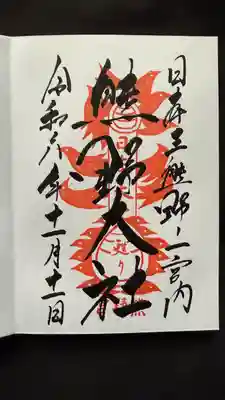 日本三熊野ノ一宮内
熊野大社
令和六年十一月十一日